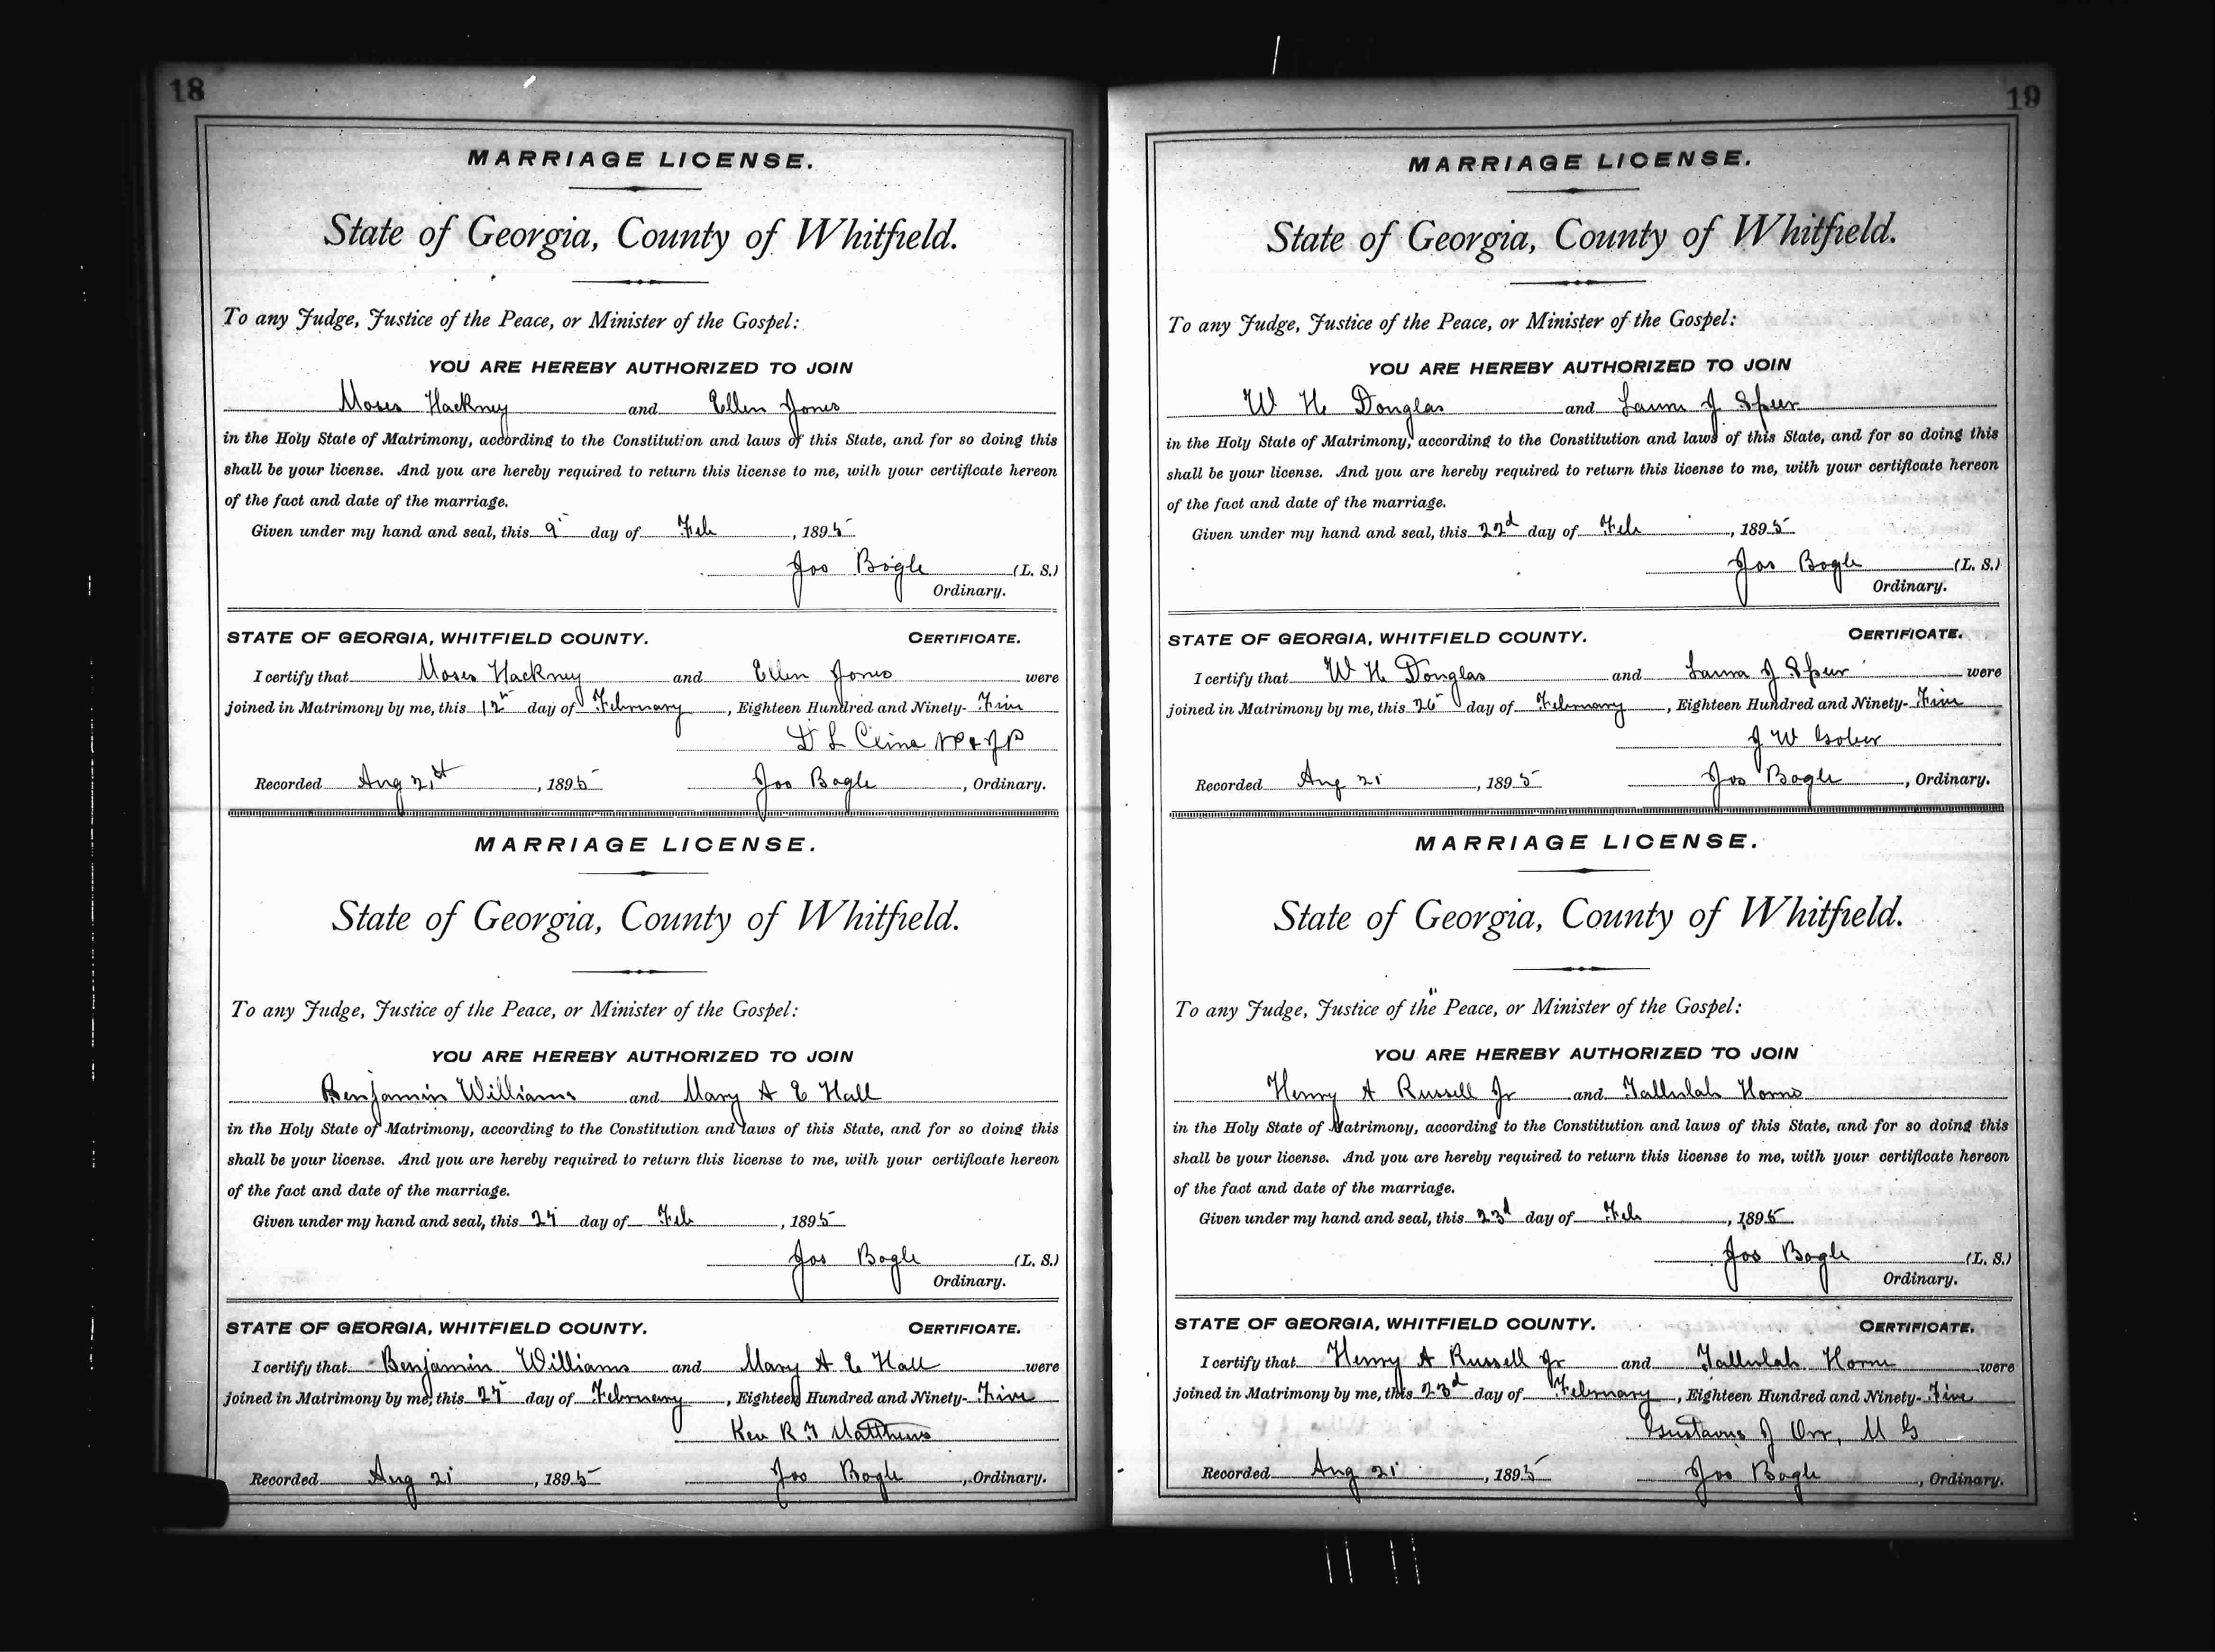 18
MARRIAGE LICENSE.
State of Georgia, County of Whitfield.
To any Judge, Justice of the Peace, or Minister of the Gospel:
YOU ARE HEREBY AUTHORIZED TO JOIN
Moses Hackney and Ellen Jones
in the Holy State of Matrimony, according to the Constitution and laws of this State, and for so doing this
shall be your license. And you are hereby required to return this license to me, with your certificate hereon
of the fact and date of the marriage.
Given under my hand and seal, this 9 day of Feb , 1895
Jos Bogle (L. S.)
Ordinary.
STATE OF GEORGIA, WHITFIELD COUNTY. CERTIFICATE.
I certify that Moses Hackney and Ellen Jones were
joined in Matrimony by me, this 12 day of February , Eighteen Hundred and Ninety- Five
D L Cline NP & JP
Recorded Aug 21st , 1895 Jos Bogle , Ordinary.
MARRIAGE LICENSE.
State of Georgia, County of Whitfield.
To any Judge, Justice of the Peace, or Minister of the Gospel:
YOU ARE HEREBY AUTHORIZED TO JOIN
Benjamin Williams and Mary A E Hall
in the Holy State of Matrimony, according to the Constitution and laws of this State, and for so doing this
shall be your license. And you are hereby required to return this license to me, with your certificate hereon
of the fact and date of the marriage.
Given under my hand and seal, this day of Feb , 1895
Jos Bogle (L. S.)
Ordinary.
STATE OF GEORGIA, WHITFIELD COUNTY. CERTIFICATE.
I certify that Benjamin Williams and Mary A E Hall were
joined in Matrimony by me, this day of February , Eighteen Hundred and Ninety- Five
Rev R F Matthews
Recorded Aug 21 , 1895 Jos Bogle , Ordinary.
19
MARRIAGE LICENSE.
State of Georgia, County of Whitfield.
To any Judge, Justice of the Peace, or Minister of the Gospel:
YOU ARE HEREBY AUTHORIZED TO JOIN
W H Douglas and Laura J Spur
in the Holy State of Matrimony, according to the Constitution and laws of this State, and for so doing this
shall be your license. And you are hereby required to return this license to me, with your certificate hereon
of the fact and date of the marriage.
Given under my hand and seal, this 22d day of Feb , 1895
Jos Bogle (L. S.)
Ordinary.
STATE OF GEORGIA, WHITFIELD COUNTY. CERTIFICATE.
I certify that W H Douglas and Laura J Spur were
joined in Matrimony by me, this 26 day of February , Eighteen Hundred and Ninety- Five
J W Gober
Recorded Aug 21 , 1895 Jos Bogle , Ordinary.
MARRIAGE LICENSE.
State of Georgia, County of Whitfield.
To any Judge, Justice of the Peace, or Minister of the Gospel:
YOU ARE HEREBY AUTHORIZED TO JOIN
Henry A Russell Jr and Tallulah Horne
in the Holy State of Matrimony, according to the Constitution and laws of this State, and for so doing this
shall be your license. And you are hereby required to return this license to me, with your certificate hereon
of the fact and date of the marriage.
Given under my hand and seal, this 23d day of Feb , 1895
Jos Bogle (L. S.)
Ordinary.
STATE OF GEORGIA, WHITFIELD COUNTY. CERTIFICATE.
I certify that Henry A Russell Jr and Tallulah Horne were
joined in Matrimony by me, this 23d day of February , Eighteen Hundred and Ninety- Five
Gustavus J Orr, M G
Recorded Aug 21 , 1895 Jos Bogle , Ordinary.